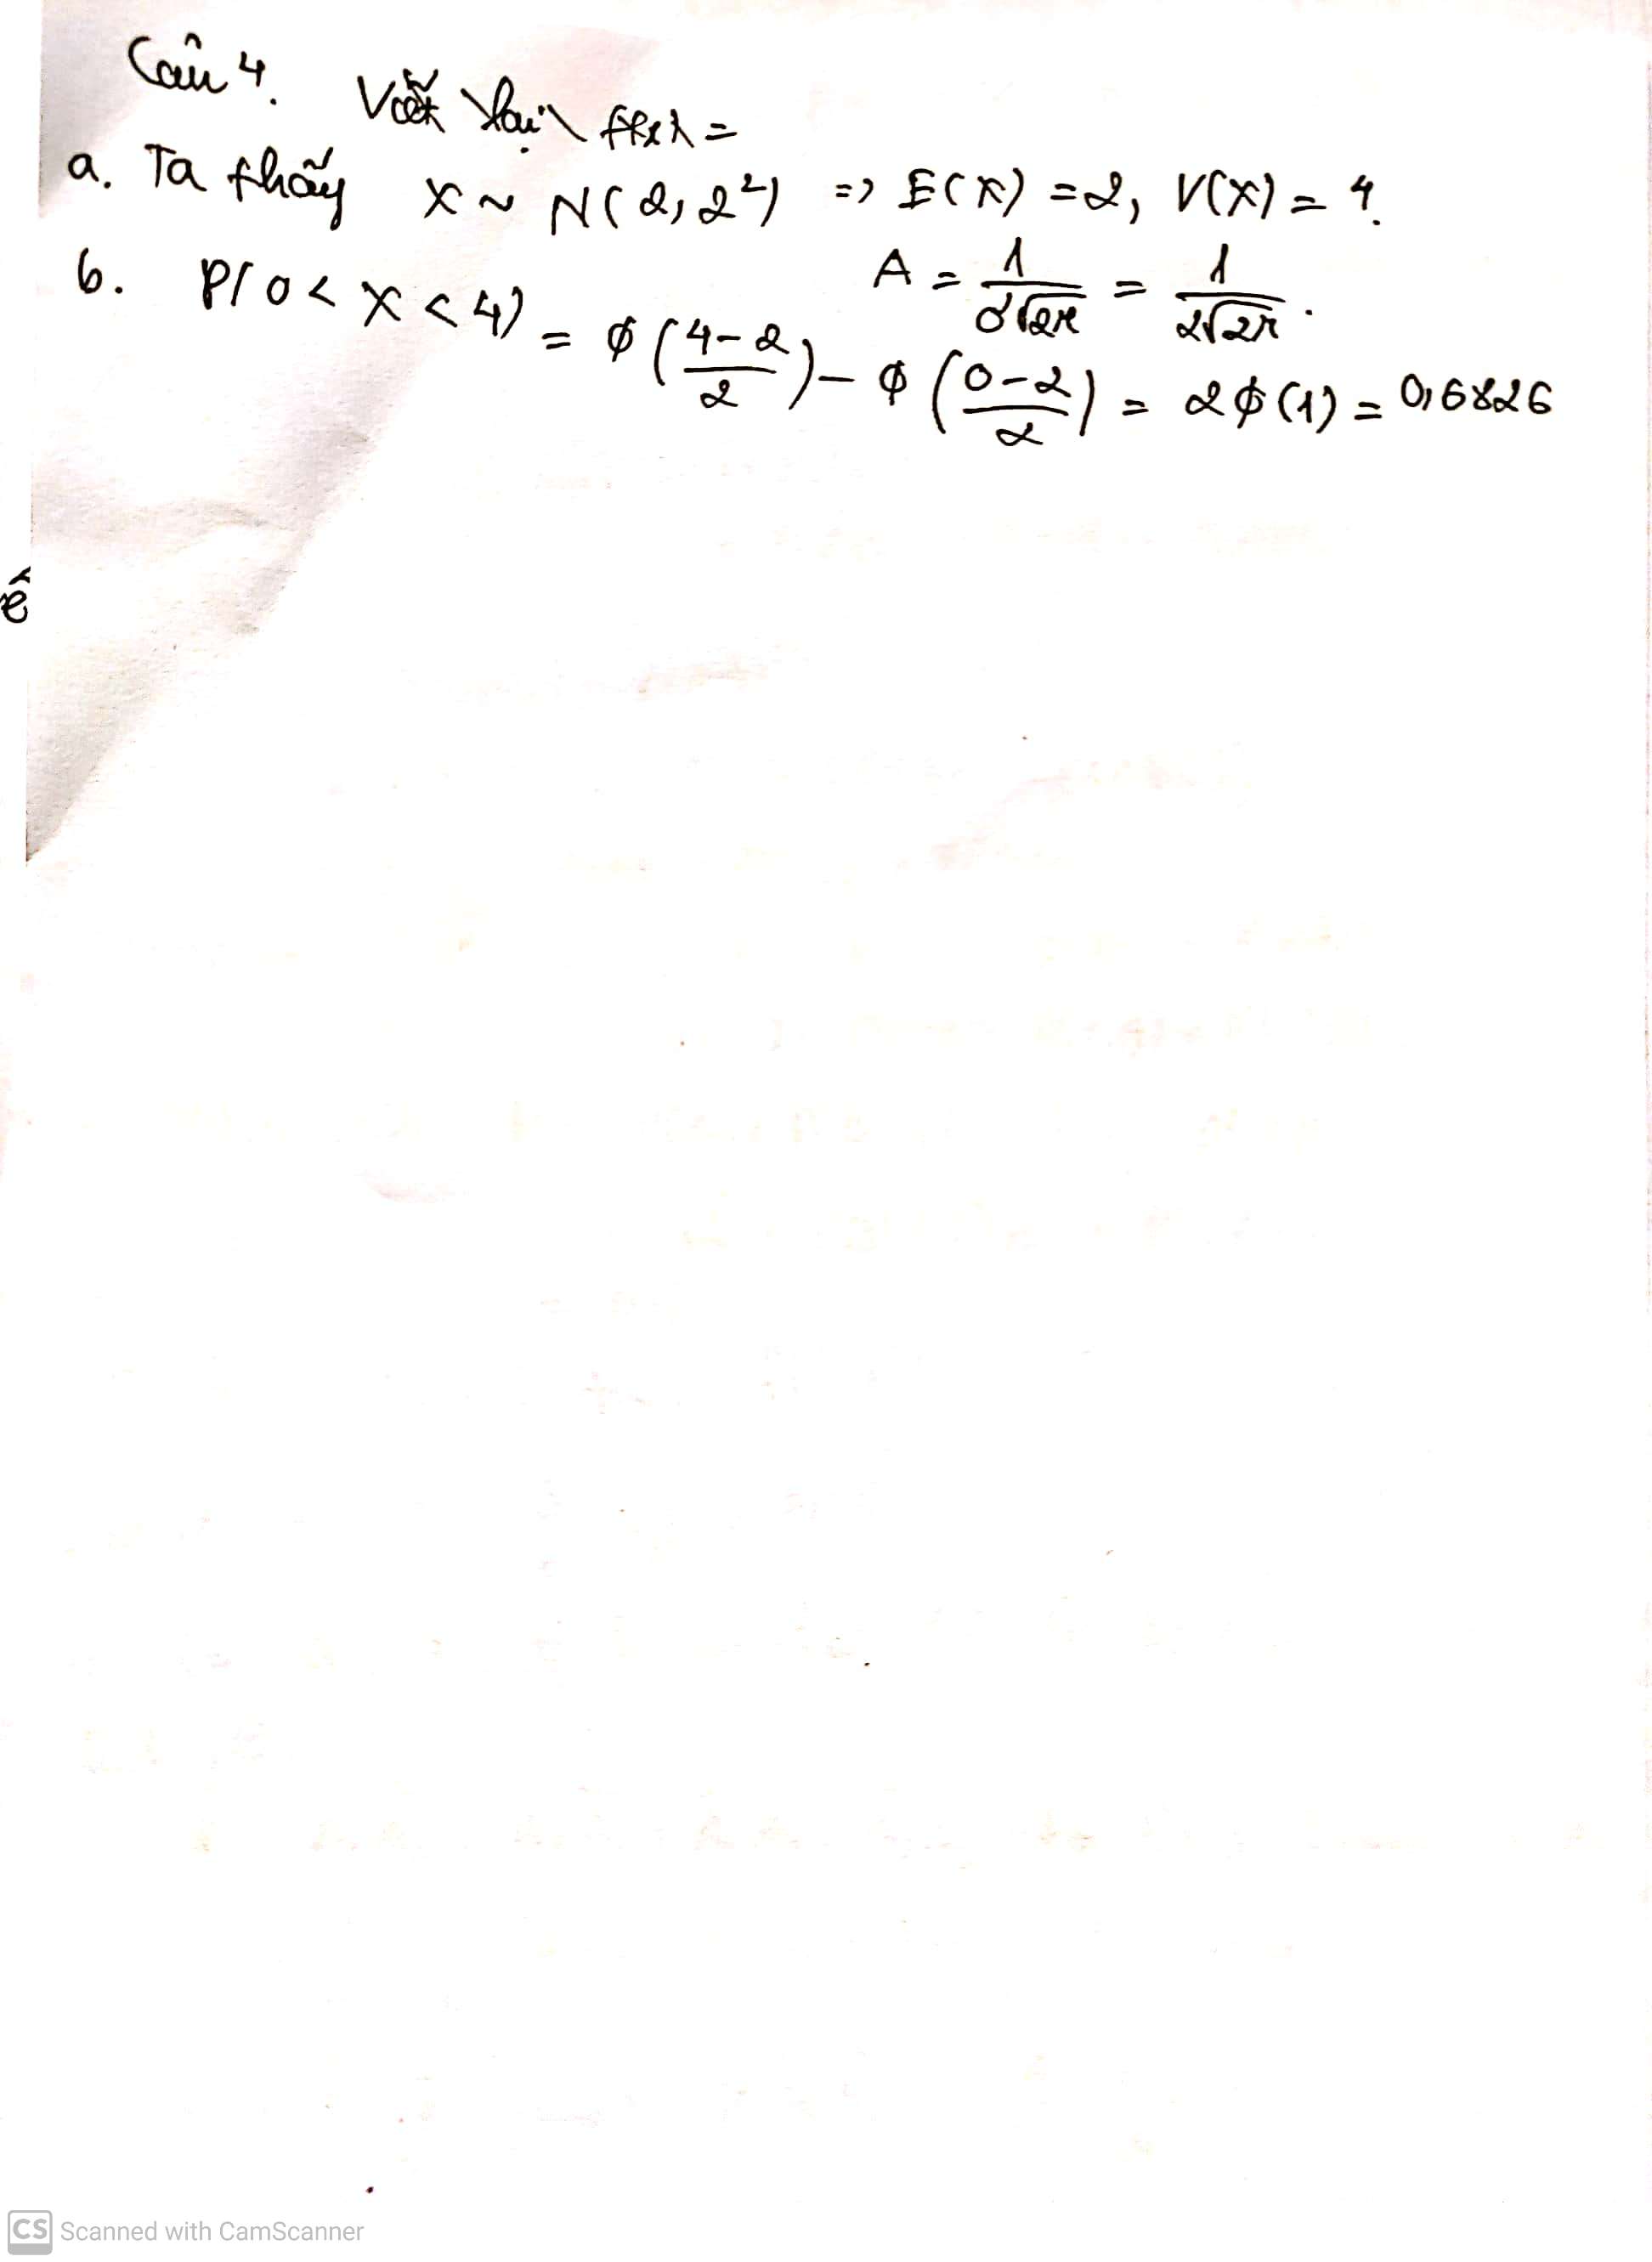 Câu 4. Viết lại f(x) =
a. Ta thấy X ~ N(2, 2²) => E(X) = 2, V(X) = 4.
A = 1/(σ√2π) = 1/(2√2π).
b. P(0 < X < 4) = φ((4-2)/2) - φ((0-2)/2) = 2φ(1) = 0,6826
ê
CS Scanned with CamScanner